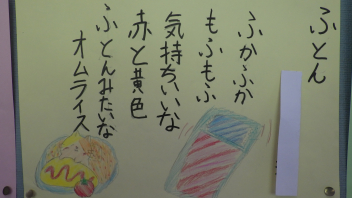 ふとん
ふかふか
もふもふ
気持ちいいな
赤と黄色
ふとんみたいな
オムライス